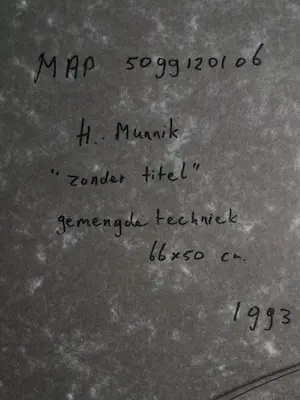 MAP 5099120106
H.. Munnik
"zonder titel"
gemengde techniek
66x50 cm.
1993